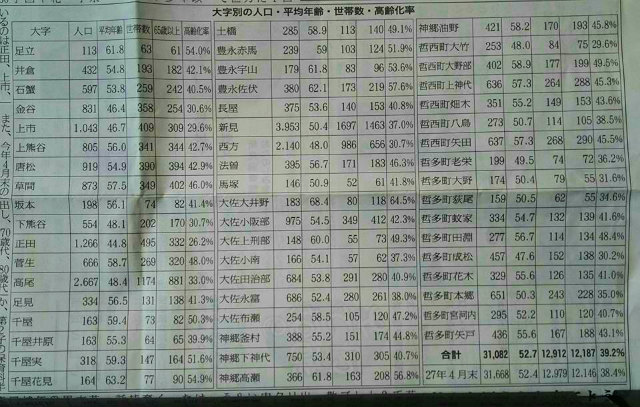 大字別の人口・平均年齢・世帯数・高齢化率
大字 人口 平均年齢 世帯数 65歳以上 高齢化率
足立 113 61.8 63 61 54.0%
井倉 432 54.8 193 182 42.1%
石蟹 597 53.8 259 242 40.5%
金谷 831 46.4 358 254 30.6%
上市 1.043 46.7 409 309 29.6%
上熊谷 805 56.0 341 344 42.7%
唐松 919 54.9 390 394 42.9%
草間 873 57.5 349 402 46.0%
坂本 198 56.1 74 82 41.4%
下熊谷 554 48.1 202 170 30.7%
正田 1.266 44.8 495 332 26.2%
菅生 666 58.7 269 320 48.0%
高尾 2.667 48.4 1174 881 33.0%
足見 334 56.5 131 138 41.3%
千屋 163 59.4 73 82 50.3%
千屋井原 163 55.3 64 65 39.9%
千屋実 318 59.3 147 164 51.6%
千屋花見 164 63.2 77 90 54.9%
土橋 285 58.9 113 140 49.1%
豊永赤馬 239 59 103 124 51.9%
豊永宇山 179 61.8 83 96 53.6%
豊永佐伏 380 62.1 173 219 57.6%
長屋 375 53.6 140 153 40.8%
新見 3.953 50.4 1697 1463 37.0%
西方 2.140 48.0 986 656 30.7%
法曽 395 56.7 171 183 46.3%
馬塚 146 50.9 52 61 41.8%
大佐大井野 183 68.4 80 118 64.5%
大佐小阪部 975 54.5 349 412 42.3%
大佐上刑部 148 60.0 55 73 49.3%
大佐小南 166 54.1 57 62 37.3%
大佐田治部 684 53.8 291 280 40.9%
大佐永富 686 52.4 280 261 38.0%
大佐布瀬 254 58.5 105 120 47.2%
神郷釜村 388 55.9 150 174 44.8%
神郷下神代 750 53.4 310 305 40.7%
神郷高瀬 366 61.8 163 208 56.8%
神郷油野 421 58.2 170 193 45.8%
哲西町大竹 253 48.0 84 75 29.6%
哲西町大野部 402 58.9 177 199 49.5%
哲西町上神代 636 57.3 264 288 45.3%
哲西町畑木 351 55.2 149 153 43.6%
哲西町八鳥 273 50.7 114 105 38.5%
哲西町矢田 637 57.3 268 290 45.5%
哲多町老栄 199 49.5 74 72 36.2%
哲多町大野 174 50.4 78 55 31.6%
哲多町荻尾 159 50.5 62 55 34.6%
哲多町蚊家 334 54.7 132 139 41.6%
哲多町田淵 277 56.7 113 134 48.4%
哲多町成松 457 47.6 152 138 30.2%
哲多町花木 329 55.6 126 135 41.0%
哲多町本郷 651 50.3 243 228 35.0%
哲多町宮河内 295 52.2 110 120 40.7%
哲多町矢戸 436 55.6 167 188 43.1%
合計 31,082 52.7 12,912 12,187 39.2%
27年4月末 31,668 52.4 12,979 12,146 38.4%